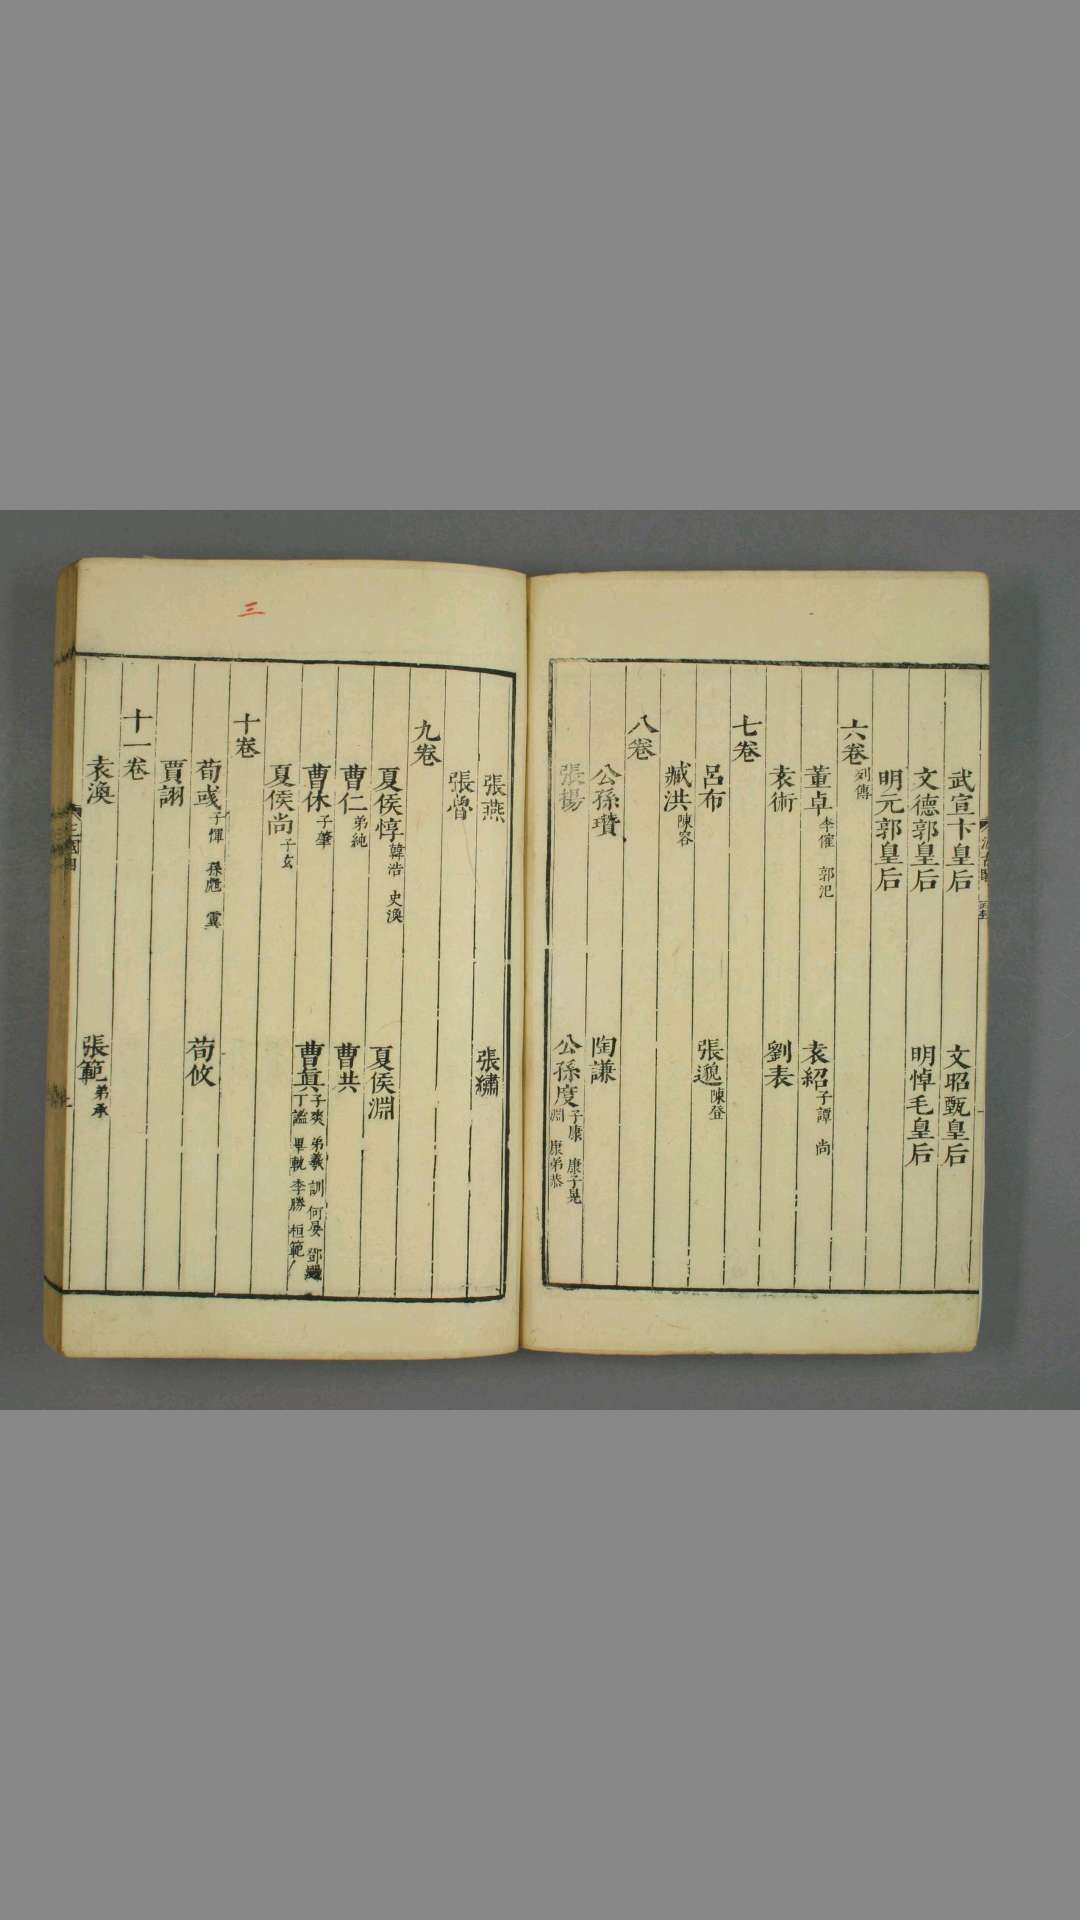 武宣卞皇后 文昭甄皇后
文德郭皇后 明悼毛皇后
明元郭皇后
六卷 列傳
董卓 李傕 郭汜 袁紹 子譚 尚
袁術 劉表
七卷
呂布 張邈 陳登
臧洪 陳容
八卷
公孫瓚 陶謙
張揚 公孫度 子康 康子晃 淵 康弟恭
張燕 張繡
張魯
九卷
夏侯惇 韓浩 史渙 夏侯淵
曹仁 弟純 曹共
曹休 子肇 曹眞 子爽 弟羲 訓 何晏 鄧颺 丁謐 畢軌 李勝 桓範
夏侯尚 子玄
十卷
荀彧 子惲 孫甝 霬 荀攸
賈詡
十一卷
袁渙 張範 弟承
三